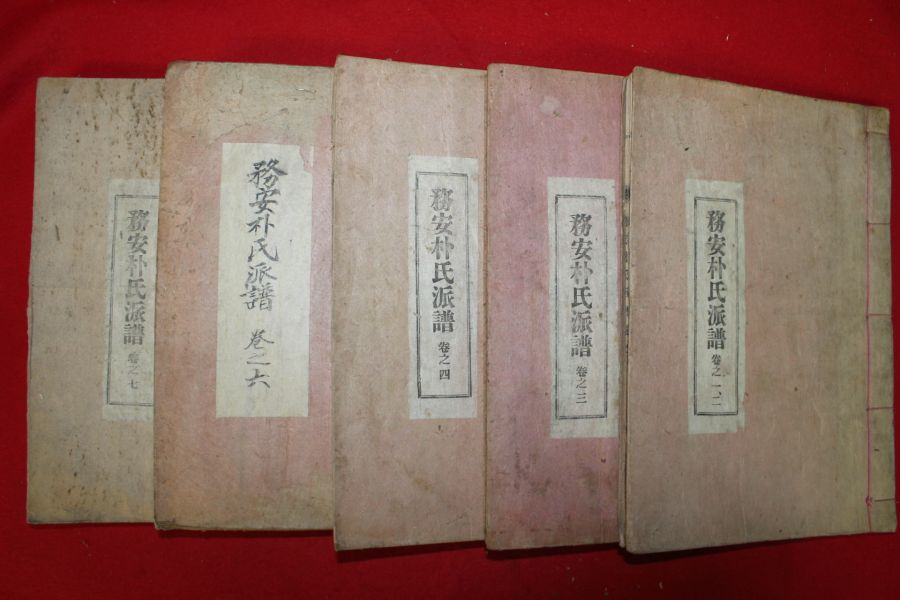 務安朴氏派譜 卷之一、二
務安朴氏派譜 卷之三
務安朴氏派譜 卷之四
務安朴氏派譜 卷之六
務安朴氏派譜 卷之七